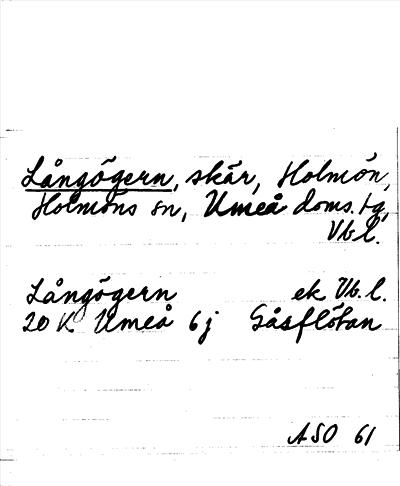 Långögern, skär, Holmön,
Holmöns sn, Umeå doms. tg,
Vb l.
Långögern ek Vb. l.
20 K Umeå 6 j Gåsflötan
ASO 61